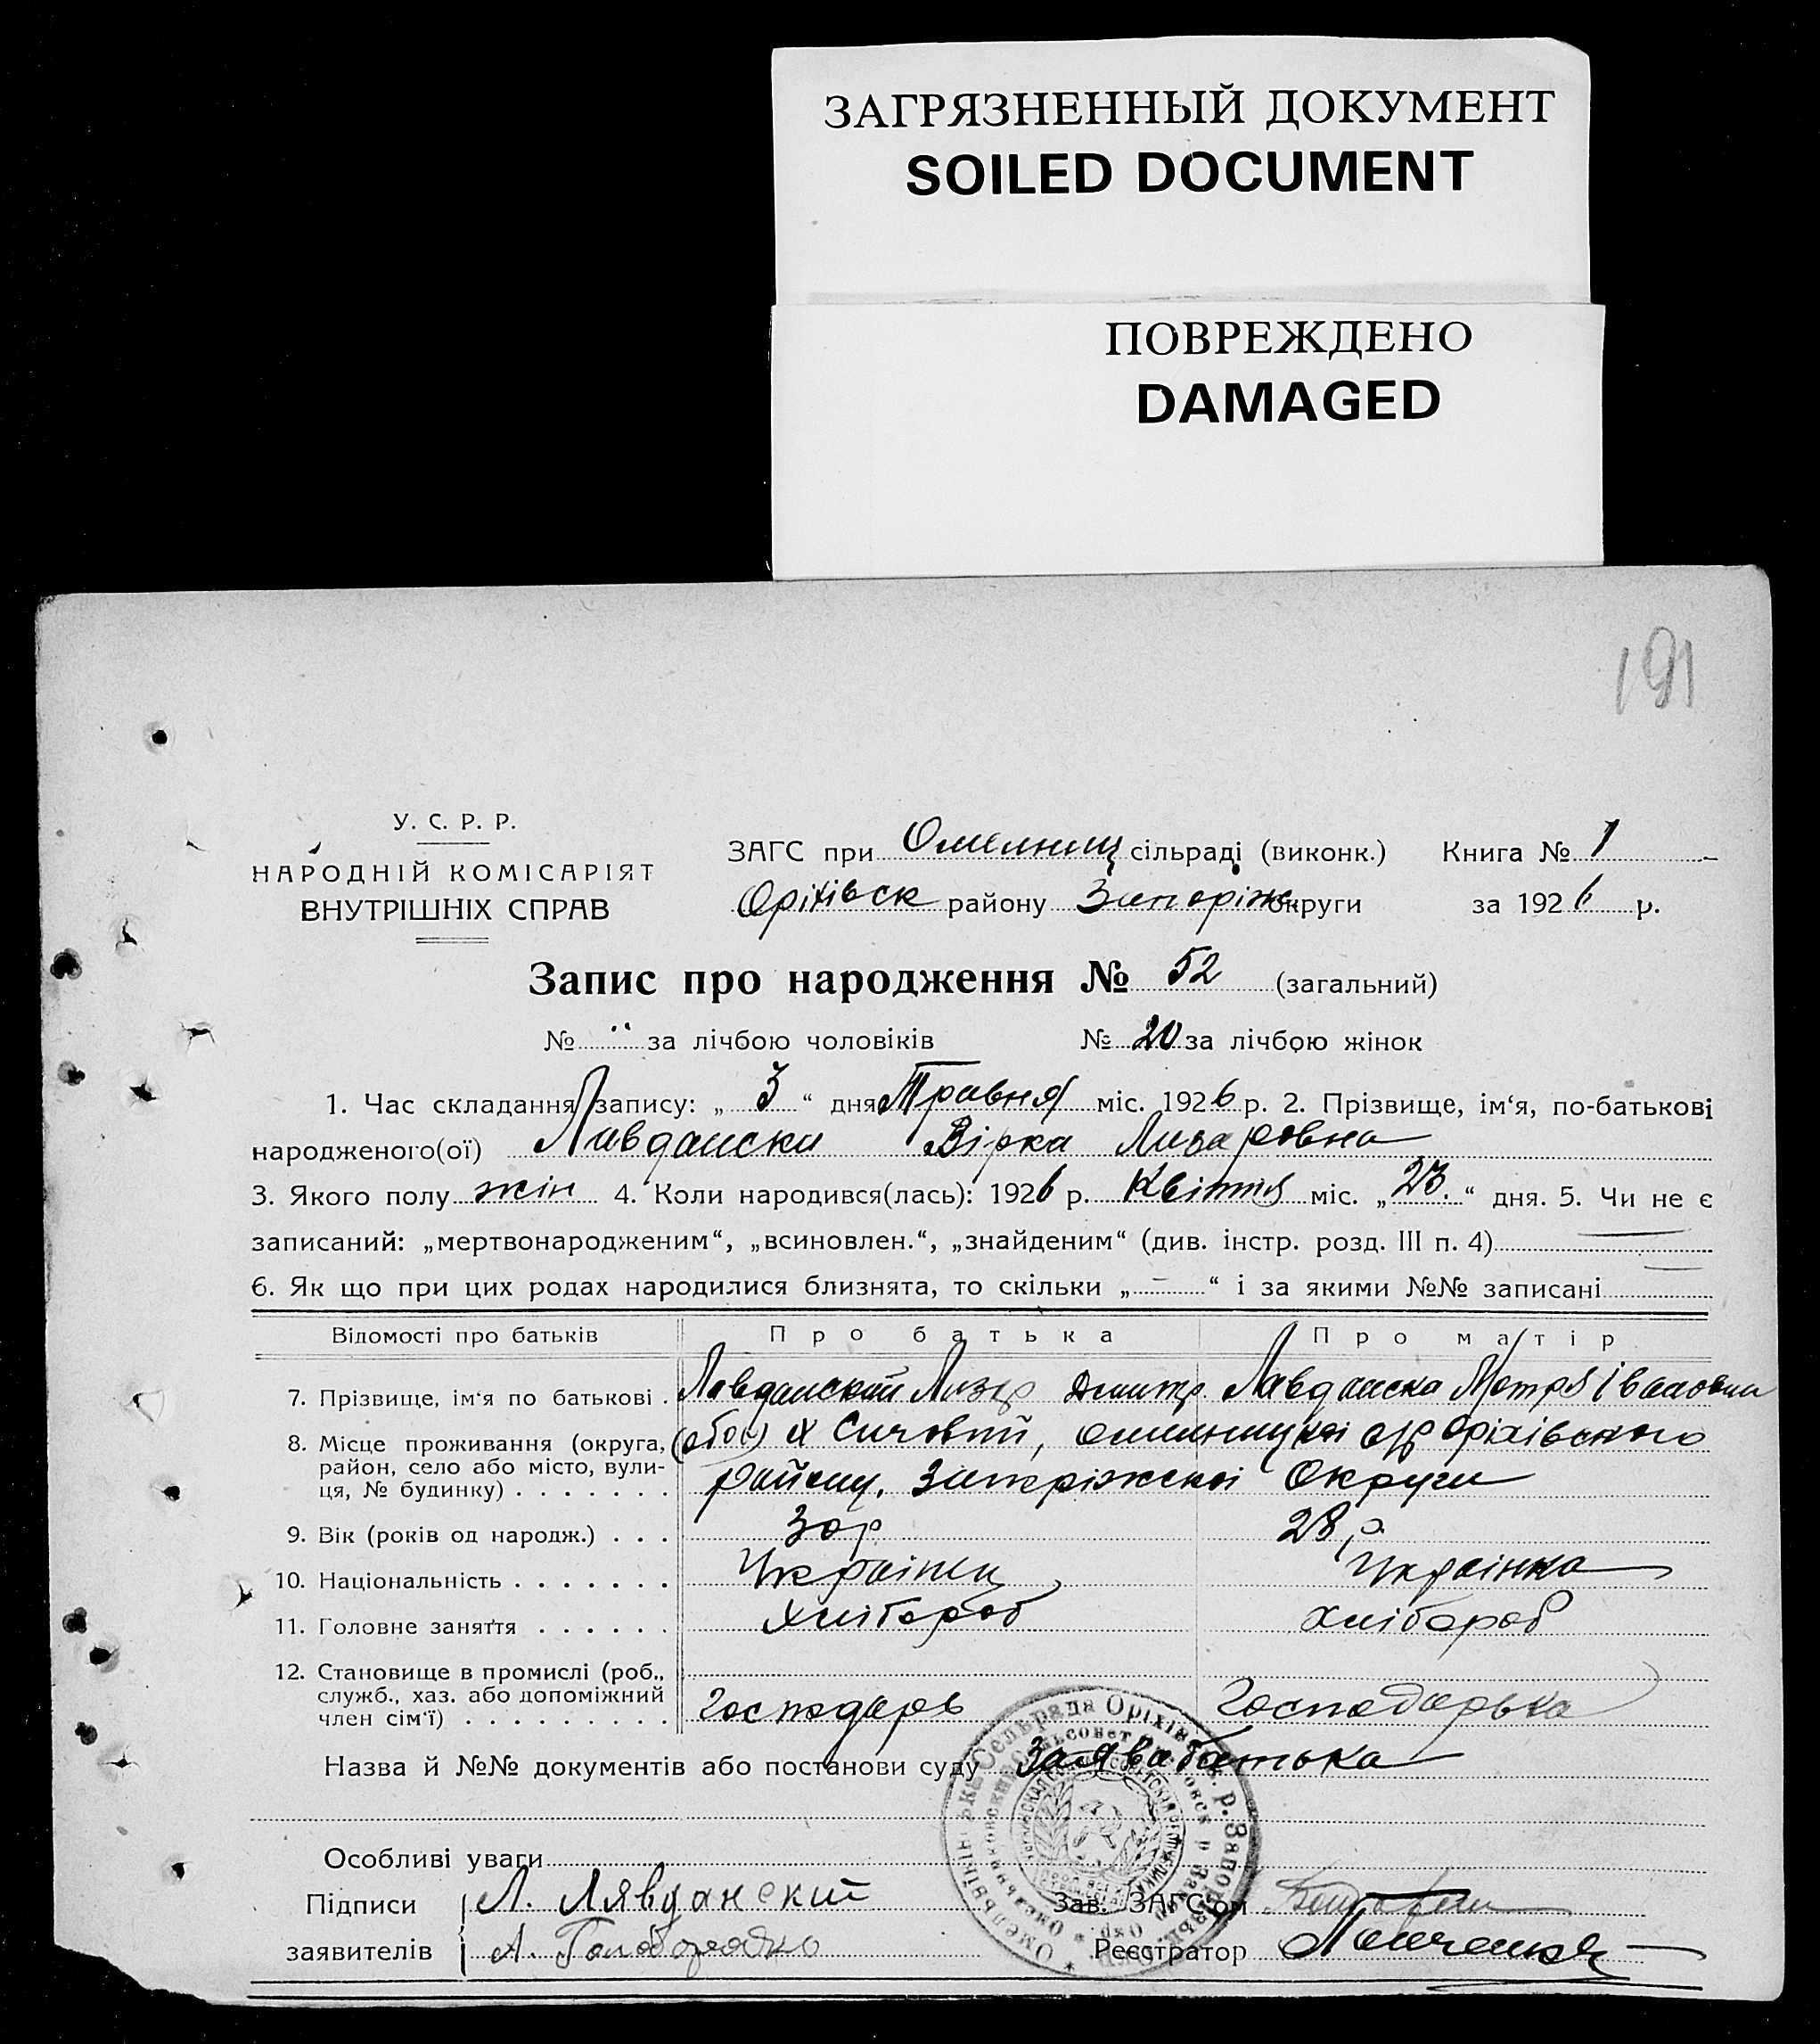 ЗАГРЯЗНЕННЫЙ ДОКУМЕНТ
SOILED DOCUMENT
ПОВРЕЖДЕНО
DAMAGED
191
У. С. Р. Р.
НАРОДНІЙ КОМІСАРІЯТ
ВНУТРІШНІХ СПРАВ
ЗАГС при Омельниц сільраді (виконк.) Книга № 1
Оріхівск району Запоріж. округи за 1926 р.
Запис про народження № 52 (загальний)
№ " за лічбою чоловіків № 20 за лічбою жінок
1. Час складання запису: „ 3 “ дня Травня міс. 1926 р. 2. Прізвище, ім‘я, по-батькові
народженого(ої) Лавданска Вірка Лазаровна
3. Якого полу жін 4. Коли народився(лась): 1926 р. Квітня міс. „ 23. “ дня. 5. Чи не є
записаний: „мертвонародженим“, „всиновлен.“, „знайденим“ (див. інстр. розд. III п. 4) —
6. Як що при цих родах народилися близнята, то скільки „ — “ і за якими №№ записані —
Відомості про батьків Про батька Про матір
7. Прізвище, ім‘я по батькові . Лавданский Лазар Дмитр. Лавданска Мотря Івановна
8. Місце проживання (округа, район, село або місто, вули-ця, № будинку) . . . . . . . (обоє) х Сичовий, Омельницкоі Оріхівского
району, Запоріжскоі Округи
9. Вік (років од народж.) . . . 30 р 28 р.
10. Національність . . . . . . . Украінец Украінка
11. Головне заняття . . . . . . Хлібороб Хлібороб
12. Становище в промислі (роб., служб., хаз. або допоміжний член сім‘ї) . . . . . . . . . Господарь Господарька
Назва й №№ документів або постанови суду Заява батька
Особливі уваги
Підписи Л. Лявданский Зав. ЗАГС‘ом
заявителів А. Голобородько Реєстратор